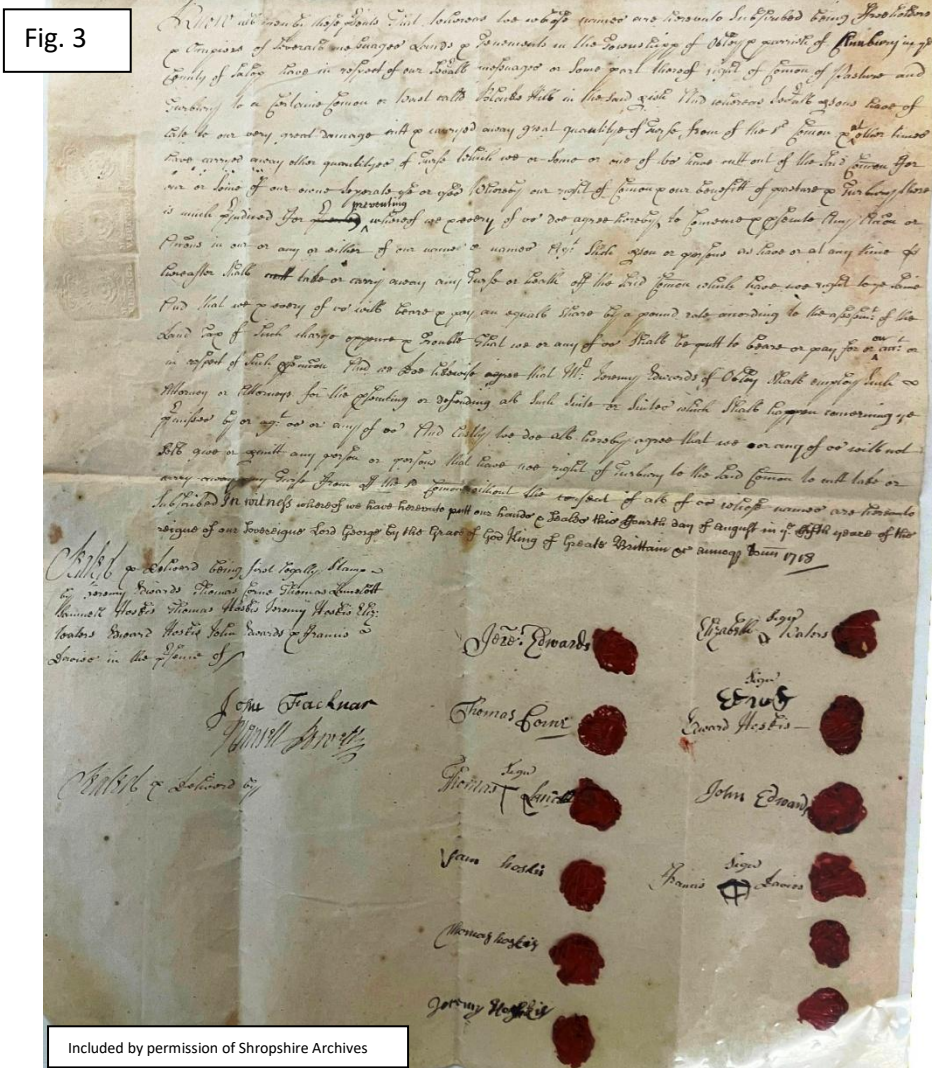 Fig. 3
Know all men by these psents That whereas we whose names are hereunto Subscribed being Freeholders
& Occupiers of Severall messuages Lands & Tenements in the Townshipp of Obley & parrish of Clunbury in ye
County of Salop have in respect of our Sevall messuages or Some part thereof right of Comon of Pasture and
Turbury to a Certaine Comon or wast calld Blacke Hill in the said pish And whereas Sevall psons have of
late to our very great Damage cutt & carryed away great quantitye of Turfe, from of the sd Comon & att other times
have carryed away other quantityes of Turfe which we or Some or one of vs have cutt out of the Said Comon for
our or Some of our owne Seperate Whereby our right of Comon & our benefitt of pasture & Turbury there
is much pjudiced For preventing whereof we & every of vs doe agree hereby to Comence & psecute Any
in our or any or either of our names Agt Such pson or psons as have or at any time
hereafter Shall cutt take or carry away any Turfe or heath off the Said Comon which have noe right to ye Same
And that we & every of vs will beare & pay an equall Share by a pound rate according to the assesmt of the
Land Tax of Such charge & trouble that we or any of vs Shall be putt to beare or pay for or on acct or
in respect of Such And we doe likewise agree that Mr. Jeremy Edwards of Obley Shall employ Such
Attorney or Attorneys for the psecuting or defending all Such Suite or Suites which Shall happen concerning ye
pmisses by or agt vs or any of vs And Lastly we doe all hereby agree that we or any of vs will not
Sell give or pmitt any person or persons that have noe right of Turbury to the Said Comon to cutt take or
carry away any Turfe from of the sd Comon without the consent of all of vs whose names are hereunto
Subscribed In witness whereof we have hereunto putt our hands & Seales this Fourth day of August in ye fifth yeare of the
reigne of our Sovereigne Lord George by the Grace of God King of Greate Brittain &c annoq Dom 1718
Sealed & Delivered being first legally Stampd
by Jeremy Edwards Thomas Corne Thomas
Sammell Hoskis Thomas Hoskis Jeremy Hoskis Eliz:
Edward Hoskis John Edwards & Francis
Davies in the psence of
Jere: Edwards
Elizabeth Signu
Signu
Thomas
Edward Hoskis
Sealed & Delivered by
Signu
Thomas T
John Edwards
Sam hoskis
Signu
Francis Davies
Thomas hoskis
Jeremy Hoskis
Included by permission of Shropshire Archives